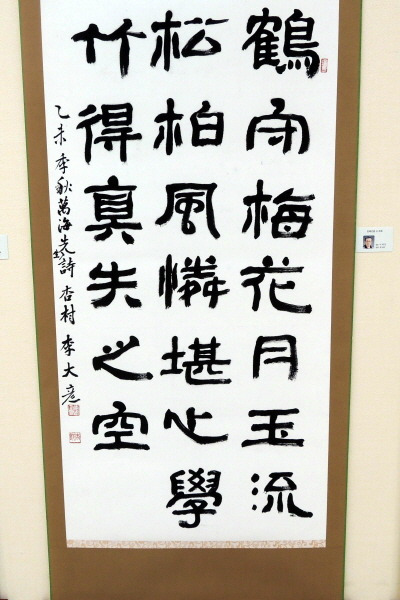 鶴 梅花月玉流
松柏風憐堪心學
竹得真失之空
乙未季秋萬海先生詩 杏村 李大